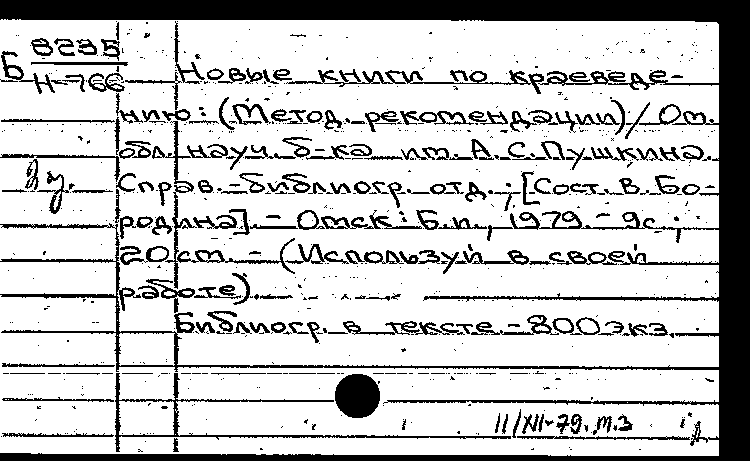 Б 8235
Н-766
Новые книги по краеведе-
нию: (Метод. рекомендации)/ Ом.
обл. науч. б-ка им. А.С.Пушкина.
Справ.-библиогр. отд.; [Сост. В. Бо-
родина]. - Омск: Б.и., 1979. - 9с.;
20 см. - (Используй в своей
работе).
Библиогр. в тексте. - 800 экз.
II/XI-79. м.3